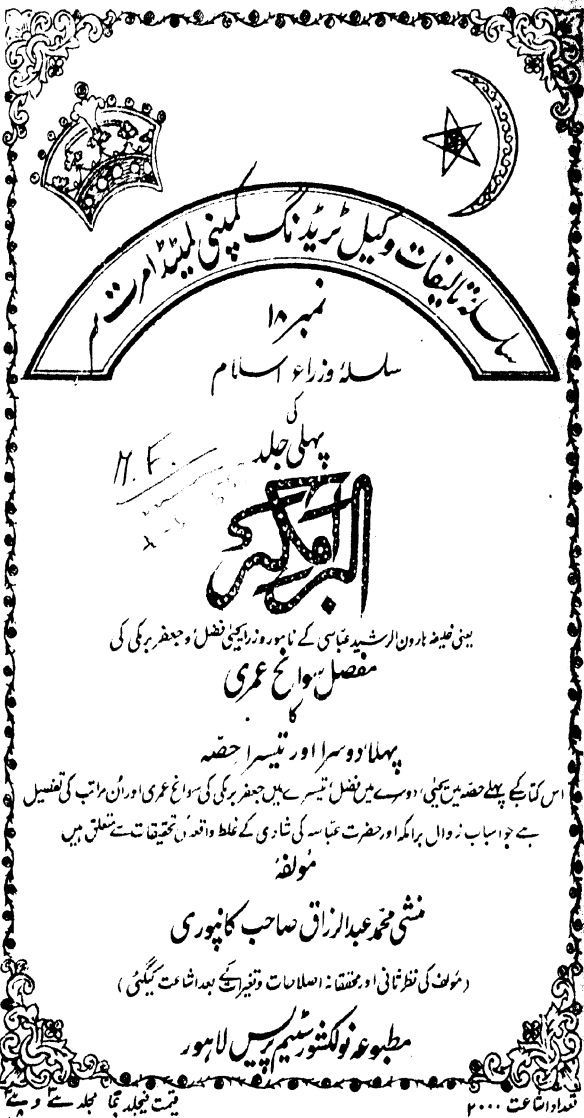 سلسلۂ تالیفات وکیل ٹریڈنگ کمپنی لمیٹڈ امرت سر
نمبر ۱۸
سلسلۂ وزراء اسلام
کی
پہلی جلد
البرامکہ
یعنی خلیفہ ہارون الرشید عباسی کے نامور وزرا یحییٰ فضل و جعفر برمکی کی
مفصل سوانح عمری
کا
پہلا دوسرا اور تیسرا حصّہ
اس کتاب کے پہلے حصّہ میں یحییٰ، دوسرے میں فضل، تیسرے میں جعفر برمکی کی سوانح عمری اور اُن مراتب کی تفصیل
ہے جو اسباب زوال برامکہ اور حضرت عباسہ کی شادی کے غلط واقعہ کی تحقیقات سے متعلق ہیں
مولفۂ
منشی محمد عبدالرزاق صاحب کانپوری
(مولف کی نظر ثانی اور محققانہ اصلاحات و تغیرات کے بعد اشاعت کیگئی)
مطبوعہ نولکشور سٹیم پریس لاہور
تعداد اشاعت ۲۰۰۰
قیمت فیجلد مجلد